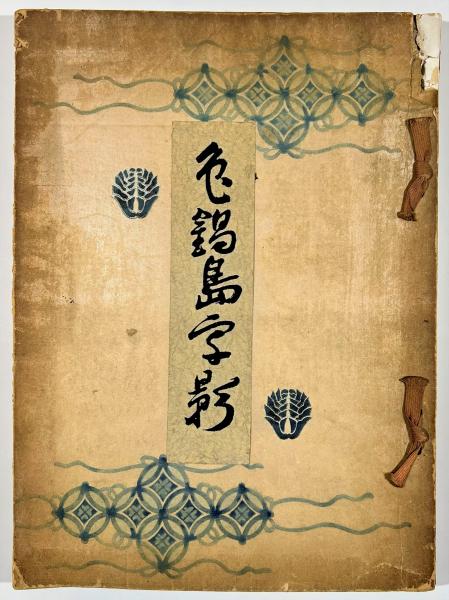 色鍋島写影